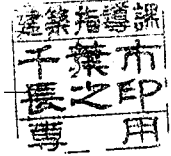 建築指導課
千葉市
長之印
専用